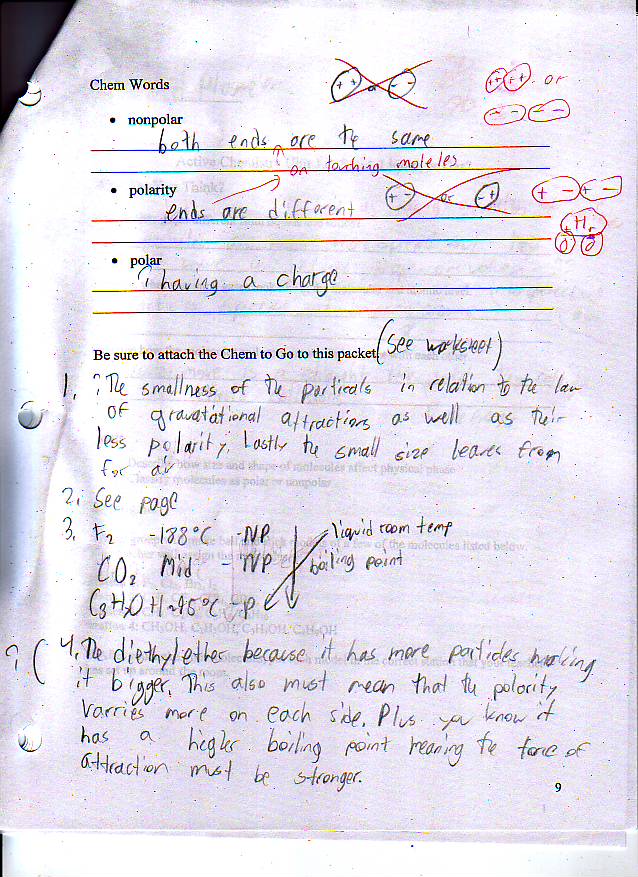 Chem Words
++ a -
++ or
- - - -
• nonpolar
both ends are the same
on touching moleles
• polarity
ends are different
+- or -+
+ - + -
+ H
• polar
? having a charge
Be sure to attach the Chem to Go to this packet. (See worksheet)
1. ? The smallness of the particals in relation to the law
of gravatational attractions as well as their
less polarity. Lastly the small size leaves from
for air
2. See page
3. F2 -188°C - NP liquid room temp
CO2 Mid - NP boiling point
C3H7OH ~95°C - P
? ( 4. The diethylether because it has more particles making
it bigger. This also must mean that the polarity
varries more on each side. Plus you know it
has a higler boiling point meaning the force of
attraction must be stronger.
9